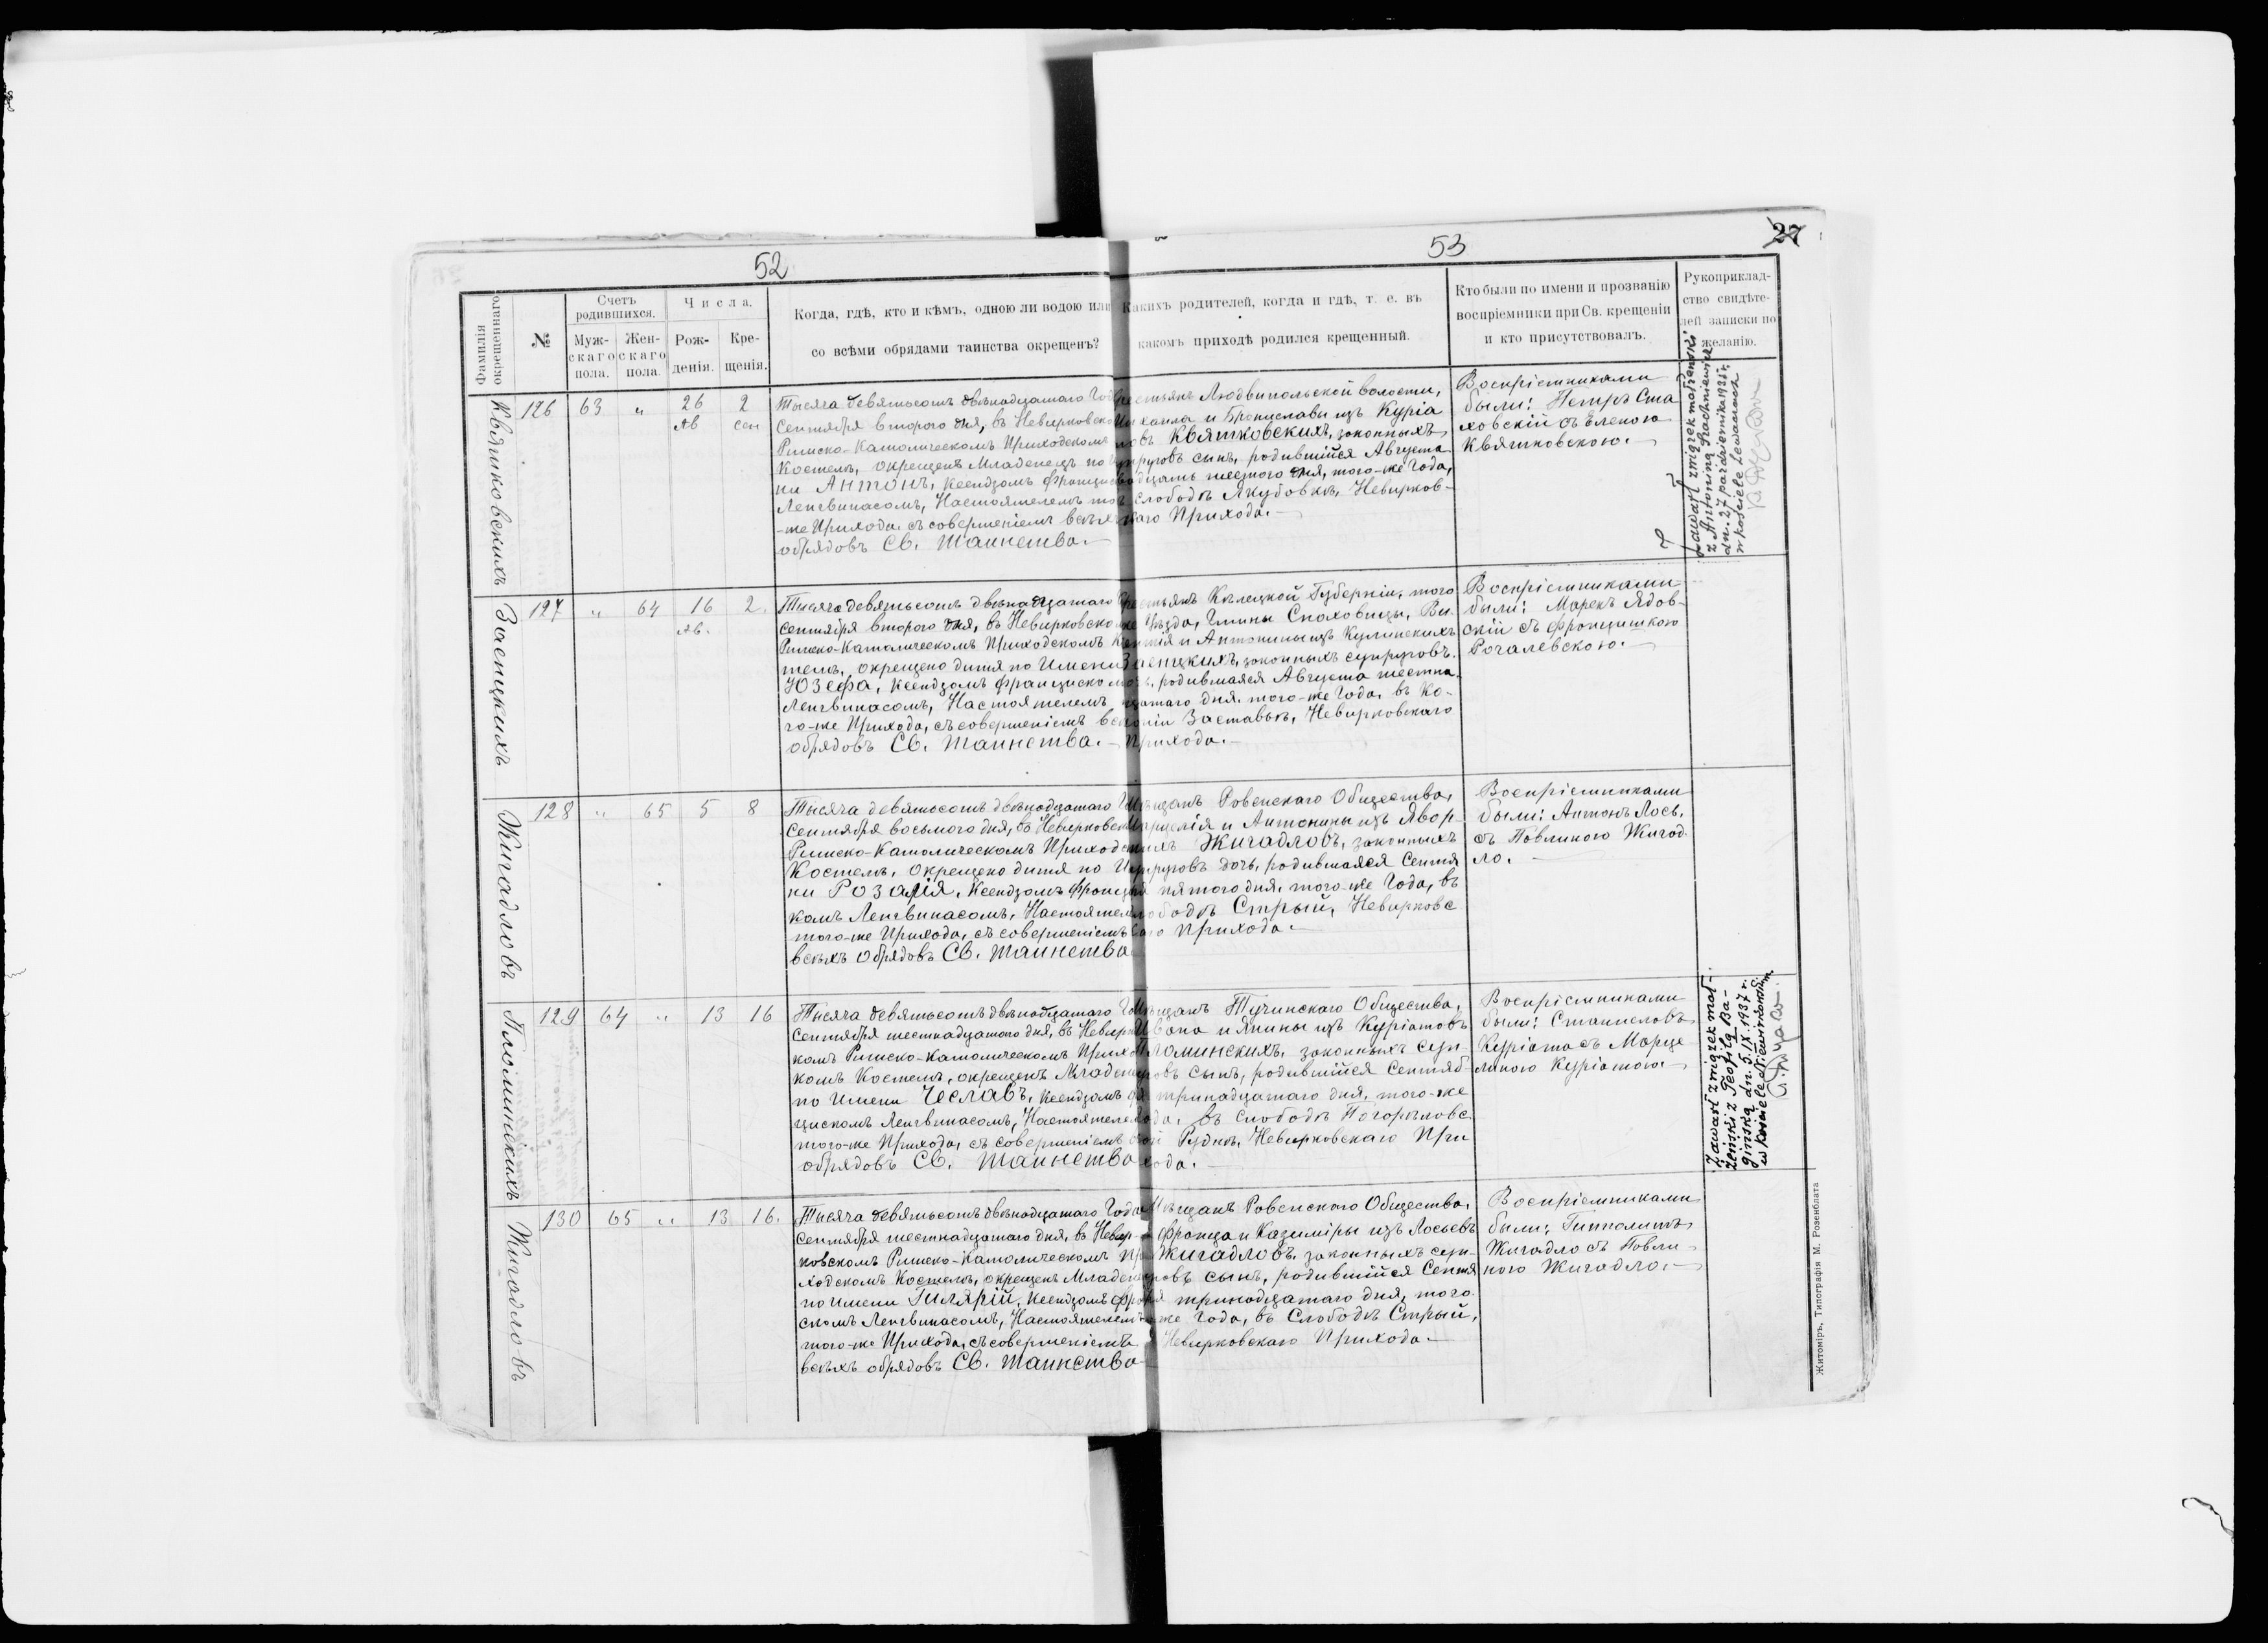 52
53
27
Фамилія окрещеннаго.
№
Счетъ родившихся.
Муж-скаго пола.
Жен-скаго пола.
Числа.
Рож-денія.
Кре-щенія.
Когда, гдѣ, кто и кѣмъ, одною ли водою или
со всѣми обрядами таинства окрещенъ?
Какихъ родителей, когда и гдѣ, т. е. въ
какомъ приходѣ родился крещенный.
Кто были по имени и прозванію
воспріемники при Св. крещеніи
и кто присутствовалъ.
Рукоприклад-
ство свидѣте-
лей записки по
желанію.
Квятковскихъ
126 63 „ 26 2
Ав Сен
Тысяча девятьсотъ двѣнадцатаго Год
Сентября второго дня, въ Невирковско
Римско-Католическомъ Приходскомъ
Костелѣ, окрещенъ Младенецъ по
ни Антонъ, Ксендзомъ Францис
Ленгвинасомъ, Настоятелемъ то
-же Прихода, съ совершеніемъ всѣх
обрядовъ Св. Таинства.—
рестьянъ Людвипольской волости,
Михаила и Брониславы изъ Куріа
новъ Квятковскихъ, законныхъ
супруговъ сынъ, родившійся Августа
двадцать шестого дня, того-же Года,
слободѣ Якубовкѣ, Невирков-
скаго Прихода.—
Воспріемниками
были: Петръ Ста
ховскій съ Еленою
Квятковскою.—
Zawarł związek małżeński
z Antoniną
dn. 27 października 1935 r.
w kościele Lewaczach
Заепцкихъ
127 „ 64 16 2.
Ав.
Тысяча девятьсотъ двѣнадцатаго
Сентября второго дня, въ Невирковско
Римско-Католическомъ Приходскомъ К
телѣ, окрещено дитя по Имени
Юзефа, Ксендзомъ Франциско
Ленгвинасомъ, Настоятелемъ
го-же Прихода, съ совершеніемъ всѣ
обрядовъ Св. Таинства.—
рестьянъ Кѣлецкой Губерніи, того
же Уѣзда, Гмины Снаховицы, Ви
кентія и Антонины изъ Кулинскихъ
Заепцкихъ, законныхъ супруговъ
дочь, родившаяся Августа шестна
дцатаго дня, того-же Года, въ Ко-
лоніи Заставье, Невирковскаго
Прихода.—
Воспріемниками
были: Марекъ Ядов-
скій съ Францишкою
Рогалевскою.—
Жигадловъ
128 „ 65 5 8
Тысяча девятьсотъ двѣнадцатаго
Сентября восьмого дня, въ Невирковск
Римско-Католическомъ Приходск
Костелѣ, окрещено дитя по И
ни Розалія, Ксендзомъ Францис
комъ Ленгвинасомъ, Настоятел
того-же Прихода, съ совершеніемъ
всѣхъ обрядовъ Св. Таинства
Мѣщанъ Ровенскаго Общества,
Марцелія и Антонины изъ Явор-
скихъ Жигадловъ, законныхъ
супруговъ дочь, родившаяся Сентя
бря пятого дня, того-же Года, въ
Слободѣ Стрый, Невирковс
каго Прихода.—
Воспріемниками
были: Антонъ Лось,
съ Павлиною Жигад
ло.—
Пломинскихъ
129 64 „ 13 16
Тысяча девятьсотъ двѣнадцатаго Го
Сентября шестнадцатаго дня, въ Невирк
комъ Римско-Католическомъ Прихо
комъ Костелѣ, окрещенъ Младен
по Имени Чеславъ, Ксендзомъ
цискомъ Ленгвинасомъ, Настоятеле
того-же Прихода, съ совершеніемъ
обрядовъ Св. Таинства
Мѣщанъ Тучинскаго Общества,
Ивана и Янины изъ Куріатовъ
Пломинскихъ, законныхъ суп-
руговъ сынъ, родившійся Сентяб-
ря тринадцатаго дня, того-же
Года, въ Слободѣ Погорѣловс
кой Рудкѣ, Невирковскаго При
хода.—
Воспріемниками
были: Станиславъ
Куріата съ Марце
линою Куріатою.—
Zawarł związek mał-
żeński z Teofilą Ba-
gińską dn. 5.IX.1937 r.
w kościele Niewirkowskim
Жигадловъ
130 65 „ 13 16.
Тысяча девятьсотъ двѣнадцатаго Года
Сентября шестнадцатаго дня, въ Невир-
ковскомъ Римско-Католическомъ При
ходскомъ Костелѣ, окрещенъ Младене
по Имени Гилярій, Ксендзомъ Фран
скомъ Ленгвинасомъ, Настоятелемъ
того-же Прихода, съ совершеніемъ
всѣхъ обрядовъ Св. Таинства
Мѣщанъ Ровенскаго Общества,
Франца и Казиміры изъ Лосьевъ
Жигадловъ, законныхъ суп-
руговъ сынъ, родившійся Сентя
бря тринадцатаго дня, того
же Года, въ Слободѣ Стрый,
Невирковскаго Прихода.—
Воспріемниками
были: Гипполитъ
Жигадло съ Павли
ною Жигадло.—
Житоміръ, Типографія М. Розенблата